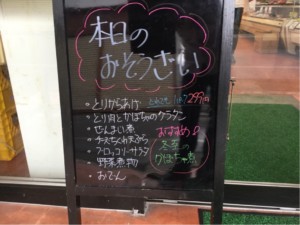 本日の
おそうざい
・とりからあげ 299円
・とり肉とかぼちゃのグラタン
・ぜんまい煮
・チーズちくわ天ぷら
・ブロッコリーサラダ
・野菜煮物
・おでん
おすすめ♪
冬至の
かぼちゃ煮